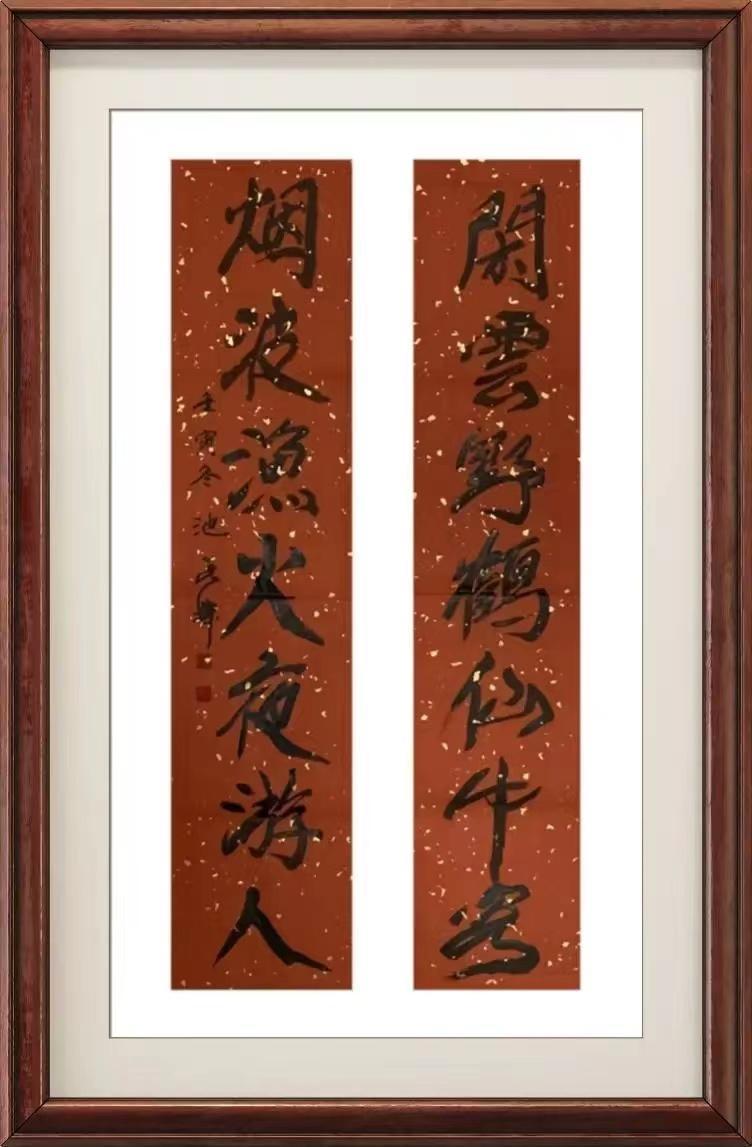 閑雲野鶴仙牛
烟波漁火夜游人
壬寅冬池